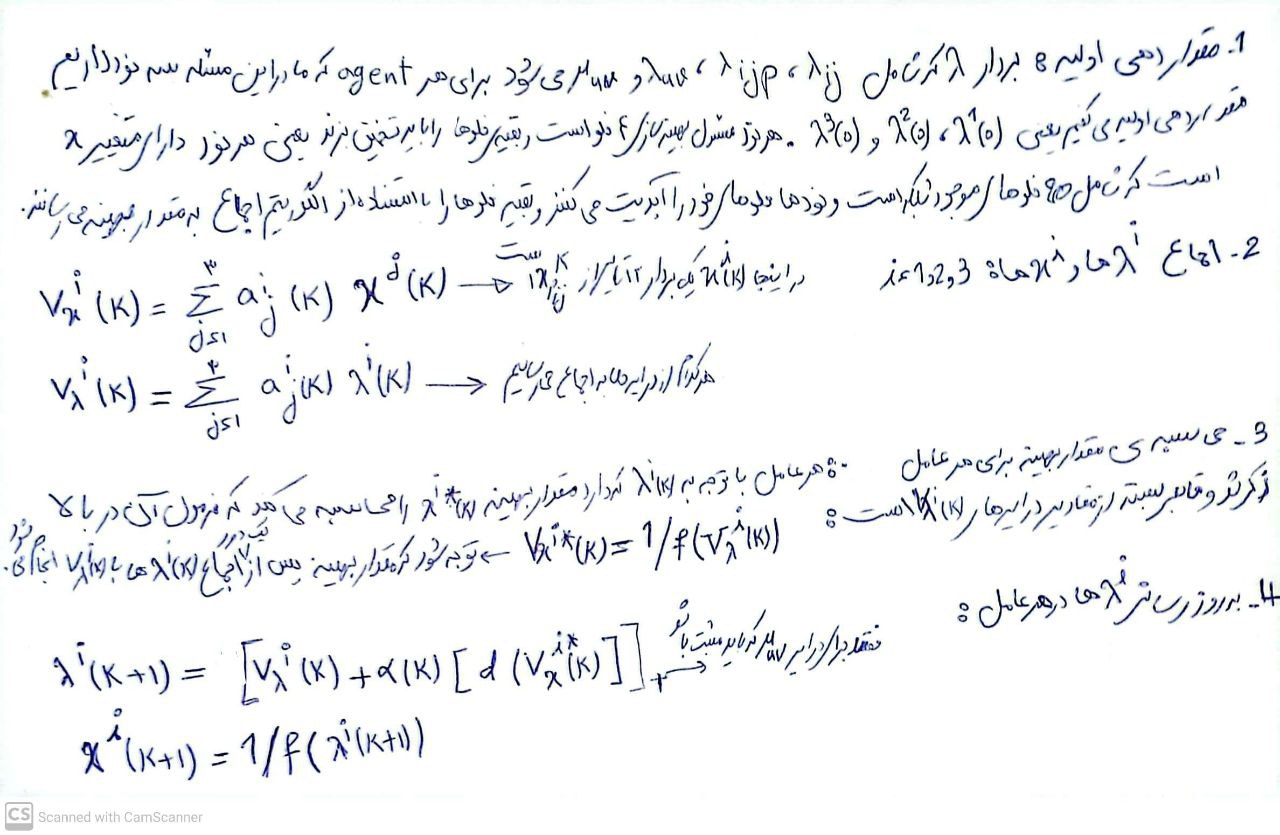 1- مقدار دهی اولیه : بردار λ که شامل λij ، λijp ، λuv و μuv می شود برای هر agent که ما در این مسئله سه نود داریم
مقدار دهی اولیه می کنیم یعنی λ¹(0) ، λ²(0) و λ³(0) . هر نود مسئول بهینه سازی ۴ فلو است و بقیه ی فلوها را باید تخمین بزند یعنی هر نود دارای متغییر x
است که شامل فلوهای موجود شبکه است و نودها فلوهای خود را آپدیت می کنند و بقیه فلوها را با استفاده از الگوریتم اجماع به مقدار بهینه می رسانند.
2- اجماع λ^i ها و x^i ها : i=1,2,3
V_x^i(K) = Σ_{j=1}^{3} a_j^i(K) x^j(K) → در اینجا x^i(K) یک بردار ۱۲ تایی از است
V_λ^i(K) = Σ_{j=1}^{3} a_j^i(K) λ^i(K) → هرکدام از درایه ها به اجماع می رسیم
3- محاسبه ی مقدار بهینه برای هر عامل : هر عامل با توجه به λ^i(K) که دارد مقدار بهینه x^{i*}(K) را محاسبه می کند که فرمول آن در بالا
ذکر شد و تابعی بسته از مقادیر درایه های λ^i(K) است : V_x^{i*}(K) = 1/f(V_λ^i(K)) ← توجه شود که مقدار بهینه پس از یک دور اجماع λ^i(K) ها با V_λ^i(K) انجام می شود.
4- به روز رسانی λ^i ها در هر عامل :
λ^i(K+1) = [V_λ^i(K) + α(K) [d(V_x^{i*}(K)]]_+ → فقط برای درایه μuv که باید مثبت باشد
x^i(K+1) = 1/f(λ^i(K+1))
CS Scanned with CamScanner